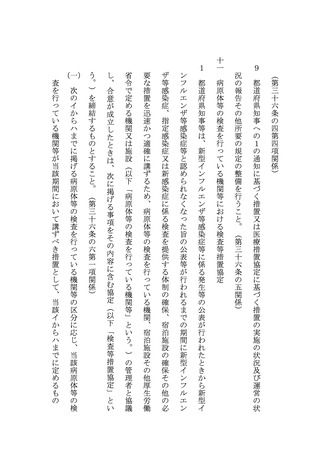 （第三十六条の四第四項関係）
９　都道府県知事への１の通知に基づく措置又は医療措置協定に基づく措置の実施の状況及び運営の状
況の報告その他所要の規定の整備を行うこと。（第三十六条の五関係）
十一　病原体等の検査を行っている機関等における検査等措置協定
１　都道府県知事等は、新型インフルエンザ等感染症等に係る発生等の公表が行われたときから新型イ
ンフルエンザ等感染症等と認められなくなった旨の公表等が行われるまでの期間に新型インフルエン
ザ等感染症、指定感染症又は新感染症に係る検査を提供する体制の確保、宿泊施設の確保その他の必
要な措置を迅速かつ適確に講ずるため、病原体等の検査を行っている機関、宿泊施設その他厚生労働
省令で定める機関又は施設（以下「病原体等の検査を行っている機関等」という。）の管理者と協議
し、合意が成立したときは、次に掲げる事項をその内容に含む協定（以下「検査等措置協定」とい
う。）を締結するものとすること。（第三十六条の六第一項関係）
㈠　次のイからハまでに掲げる病原体等の検査を行っている機関等の区分に応じ、当該病原体等の検
査を行っている機関等が当該期間において講ずべき措置として、当該イからハまでに定めるもの